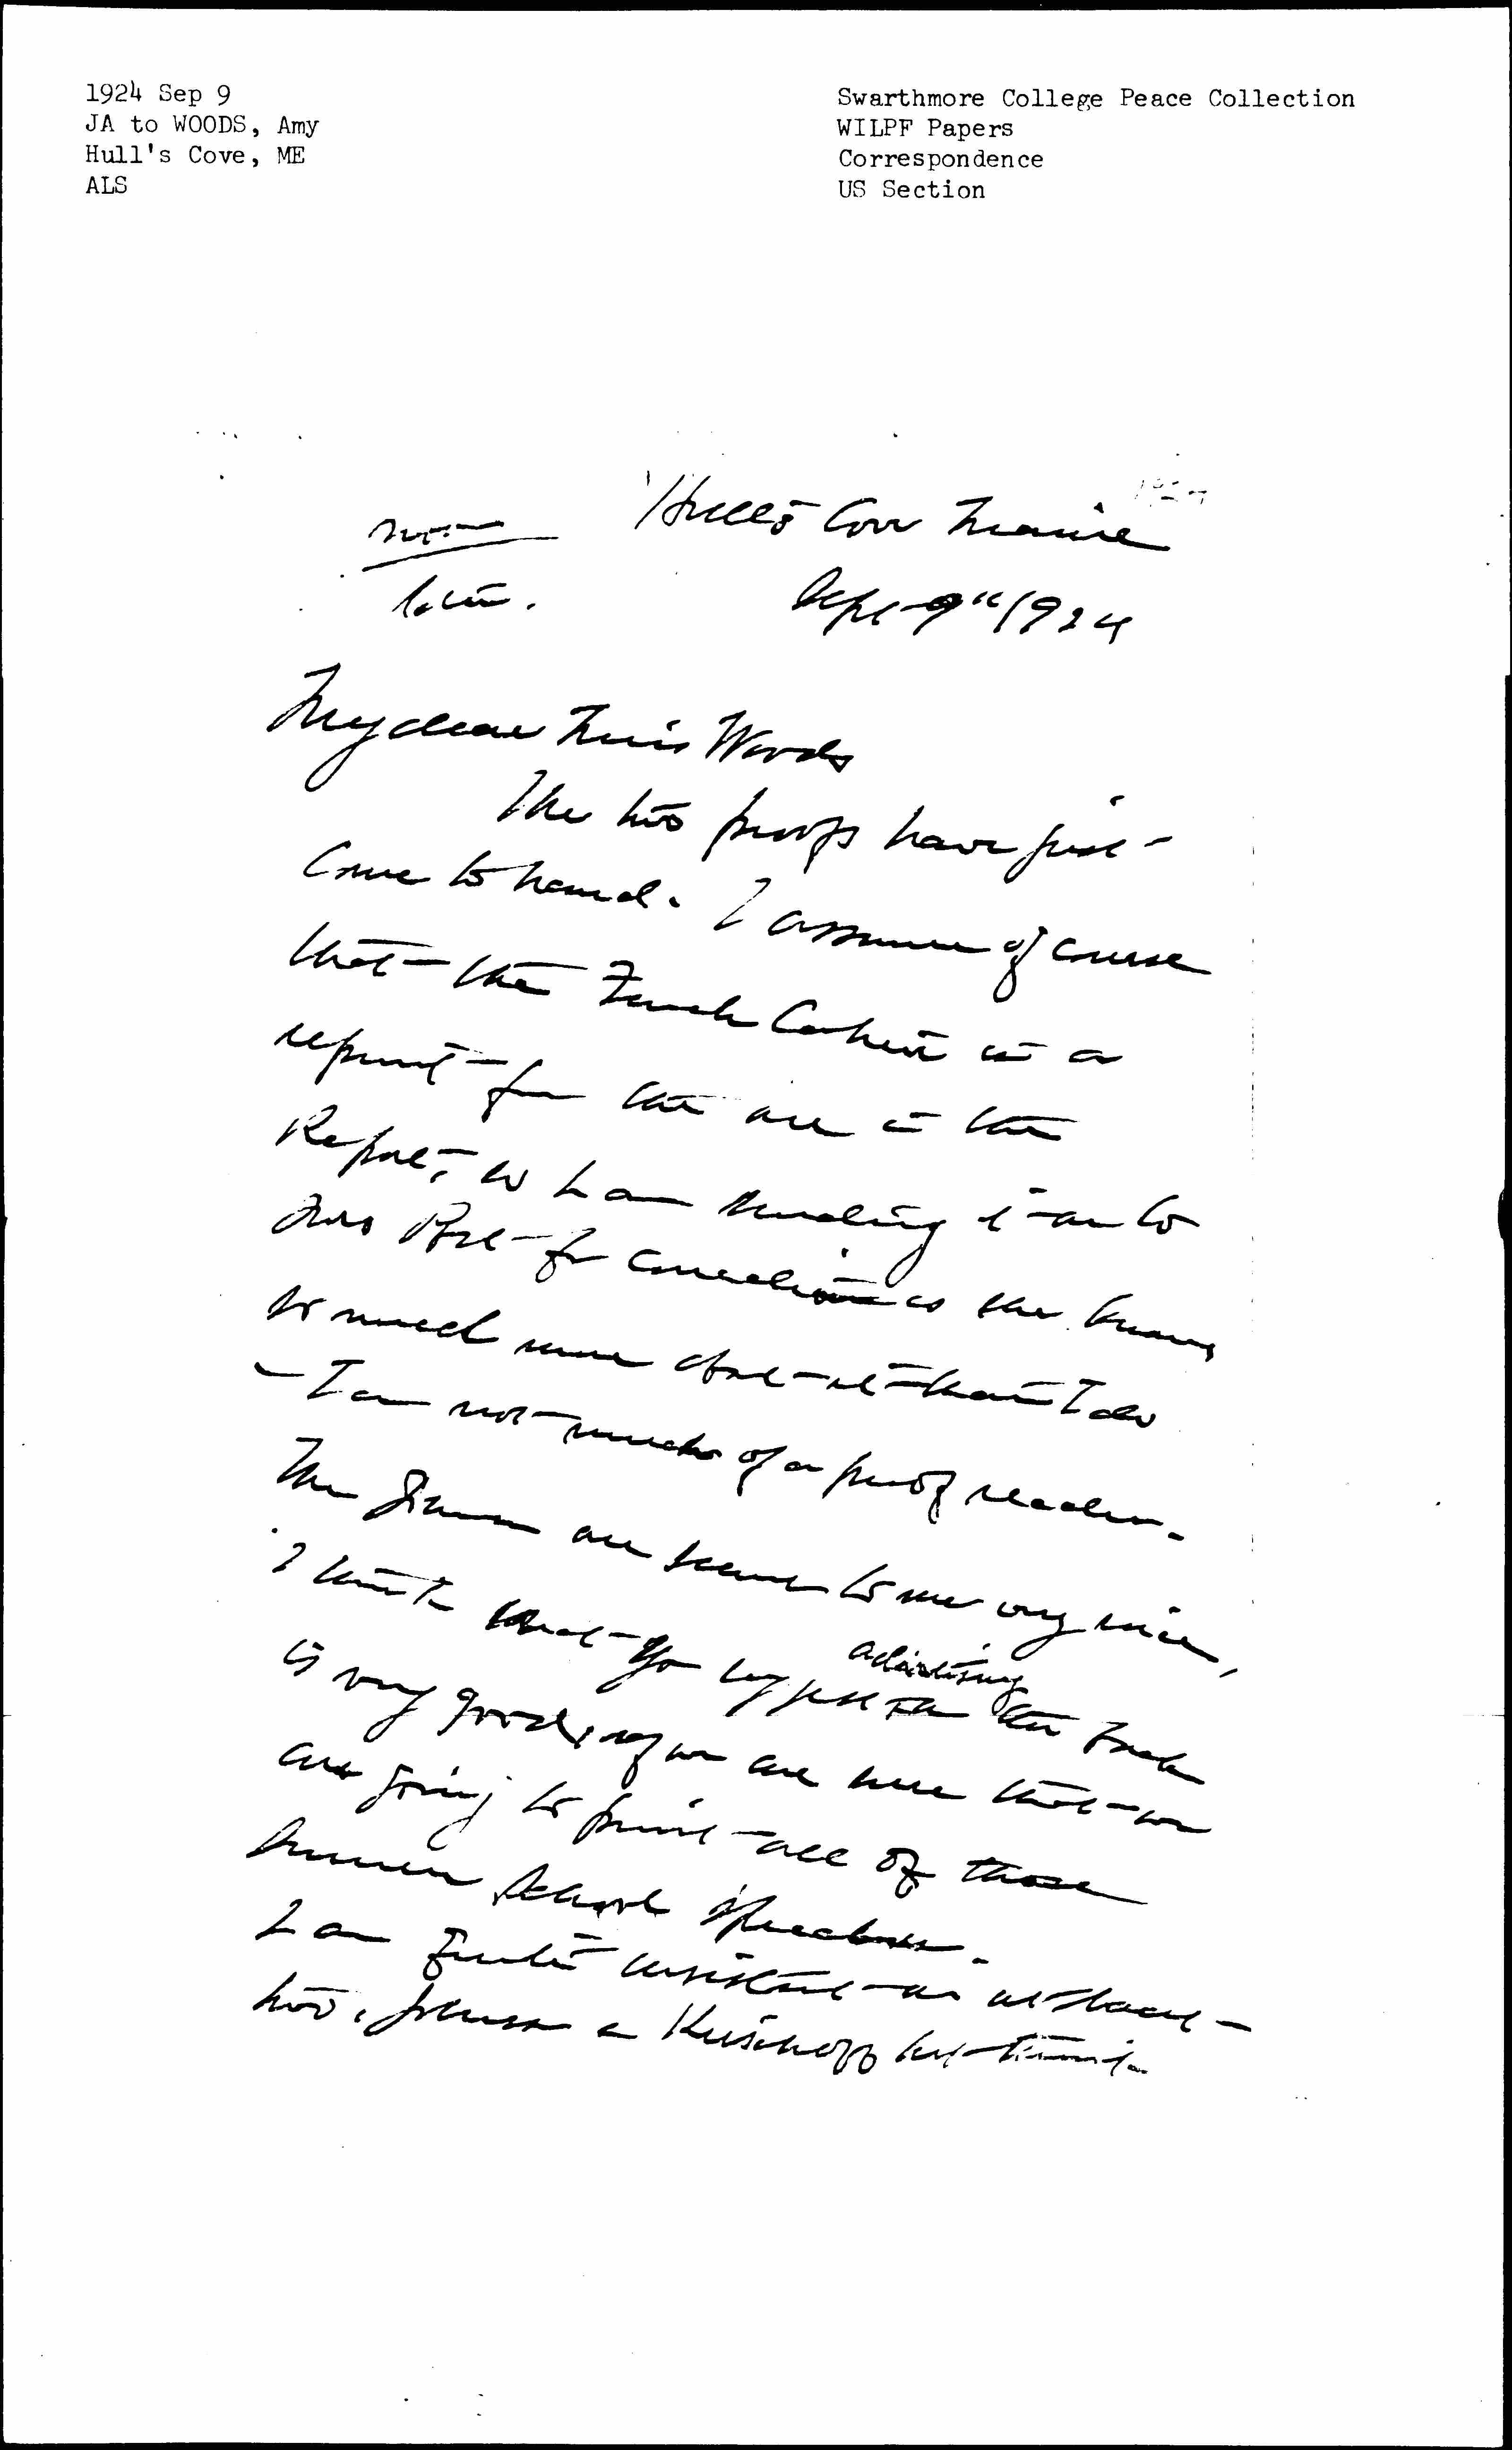 1924 Sep 9
JA to WOODS, Amy
Hull's Cove, ME
ALS
Swarthmore College Peace Collection
WILPF Papers
Correspondence
US Section
Hull's Cove Maine
Sept 9" 1924
My dear Miss Woods
The two proofs have just
come to hand. I assume of course
that the French is a
reprint for the use in the
Report, so I am sending it on to
Miss for corrections as she knows
so much more about it than I do
– I am not much of a proof reader.
The are seem to me very nice,
I think that yr suggestion advertising the Book
is very good, if we are sure that we
are going to print all of those
Summer School speeches.
I am quite insistent on at least
two,